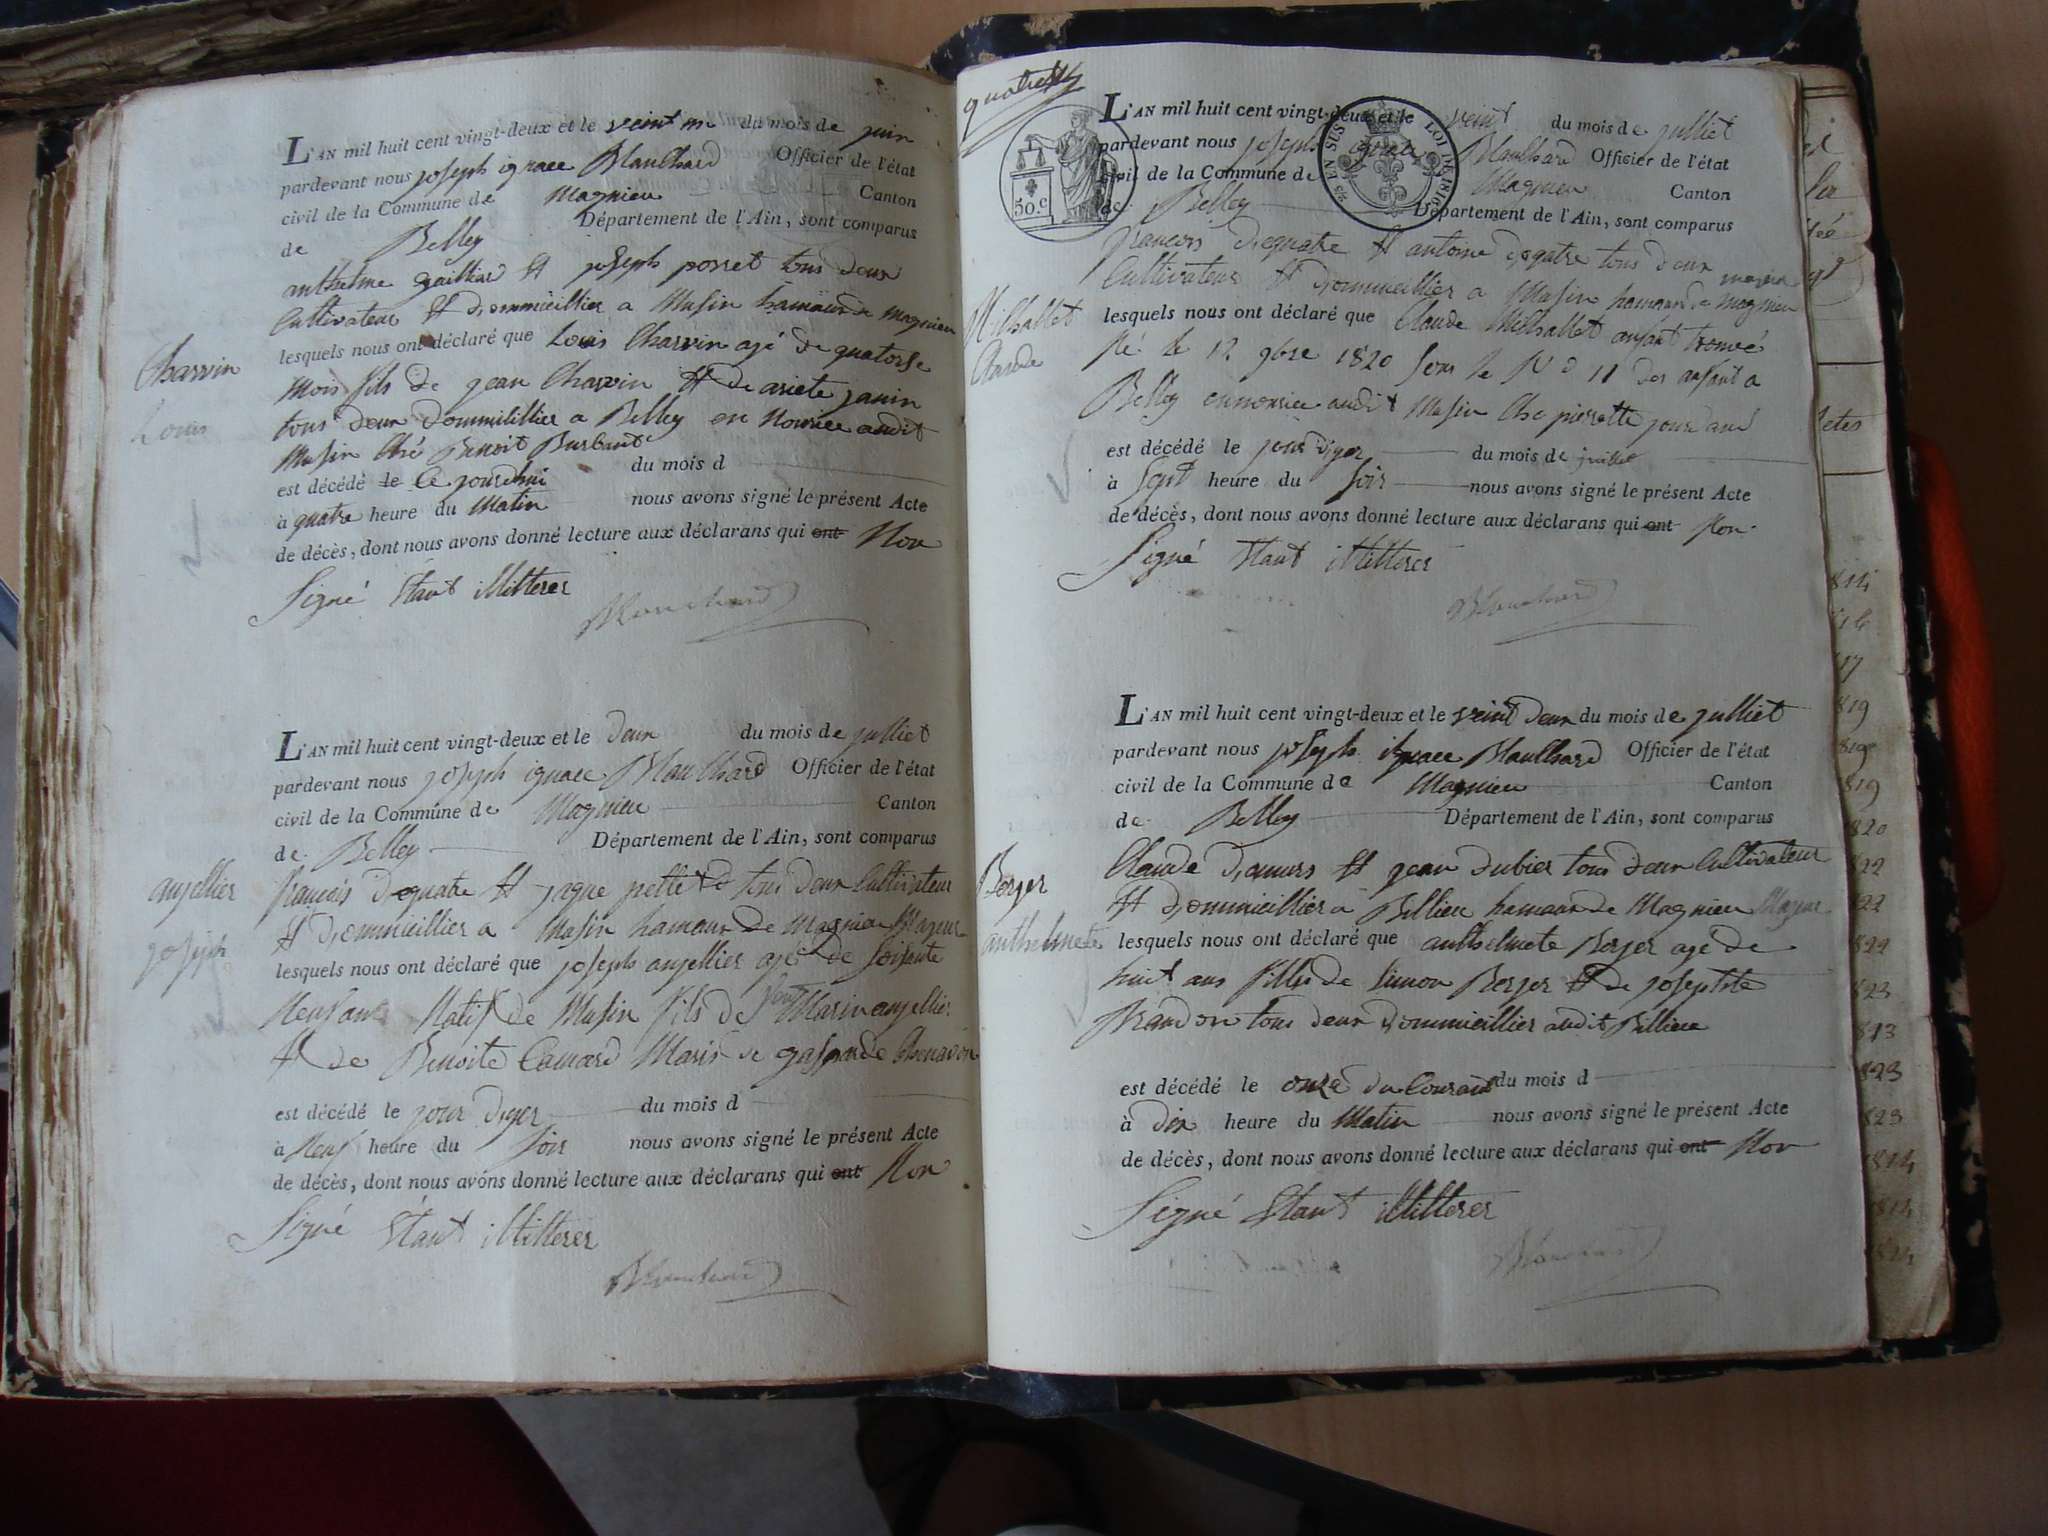 L'AN mil huit cent vingt-deux et le veint du mois de juin
pardevant nous joseph ignace Blanchard Officier de l'état
civil de la Commune de Magnieu Canton
de Belley Département de l'Ain, sont comparus
anthelme gailliar et joseph porret tous deux
Cultivateur et dommieillier a Musin hamaux de magnieu
lesquels nous ont déclaré que Louis Charvin agé de quatorse
mois fils de jean Charvin et de ariete janin
tous deux dommieillier a Belley en Nourice audit
Musin Ché Benoit Burbant
est décédé le Ce jourdhui du mois d
à quatre heure du Matin nous avons signé le présent Acte
de décès, dont nous avons donné lecture aux déclarans qui ont Non
Signé Etant illitterer
Blanchard
Charvin
Louis
L'AN mil huit cent vingt-deux et le deux du mois de julliet
pardevant nous joseph ignace Blanchard Officier de l'état
civil de la Commune de Magnieu Canton
de Belley Département de l'Ain, sont comparus
françois dequatre et jaque pettit tous deux Cultivateur
et dommieillier a Musin hamaux de magnieu Majeur
lesquels nous ont déclaré que joseph anjellier agé de soisante
Neuf ans Natif de Musin fils de feu Marin anjellier
et de Benoite Camard Maris de gasparde Chenavon
est décédé le jour dyer du mois d
à Neuf heure du soir nous avons signé le présent Acte
de décès, dont nous avons donné lecture aux déclarans qui ont Non
Signé Etant illitterer
Blanchard
anjellier
joseph
quatre
50.c
EN SUS LOI DE 1816
L'AN mil huit cent vingt-deux et le veint du mois de julliet
pardevant nous joseph ignace Blanchard Officier de l'état
civil de la Commune de Magnieu Canton
de Belley Département de l'Ain, sont comparus
françois dequatre et antoine deqatre tous deux majeur
Cultivateur et dommieillier a Musin hamaux de magnieu
lesquels nous ont déclaré que Claude Milhallet anfant trouvé
Né le 12 9bre 1820 sous le N° 11 des anfant a
Belley ennourice audit Musin Che pierrette jourdand
est décédé le jour dyer du mois de juillet
à sept heure du soir nous avons signé le présent Acte
de décès, dont nous avons donné lecture aux déclarans qui ont Non
Signé Etant illitterer
Blanchard
Milhallet
Claude
L'AN mil huit cent vingt-deux et le veint deux du mois de julliet
pardevant nous joseph ignace Blanchard Officier de l'état
civil de la Commune de Magnieu Canton
de Belley Département de l'Ain, sont comparus
Claude demurs et jean dubier tous deux Cultivateur
et dommieillier a Billieu hamaux de Magnieu Majeur
lesquels nous ont déclaré que anthelmete Berger agé de
huit ans fillies de simon Berger et de josephte
Brandon tous deux dommieillier audit Billieu
est décédé le onze du Courant du mois d
à dix heure du Matin nous avons signé le présent Acte
de décès, dont nous avons donné lecture aux déclarans qui ont Non
Signé Etant illitterer
Blanchard
Berger
anthelmete
819
819
820
822
822
822
823
823
823
823